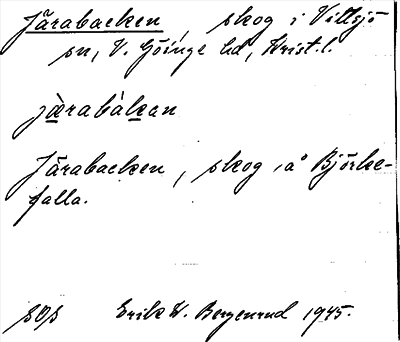 Järabacken, skog i Vittsjö
sn, V. Göinge hd, Krist.l.
jæ̀rabàkan
Järabacken, skog å Björke-
falla.
SOS Erik W. Bergenrud 1945.